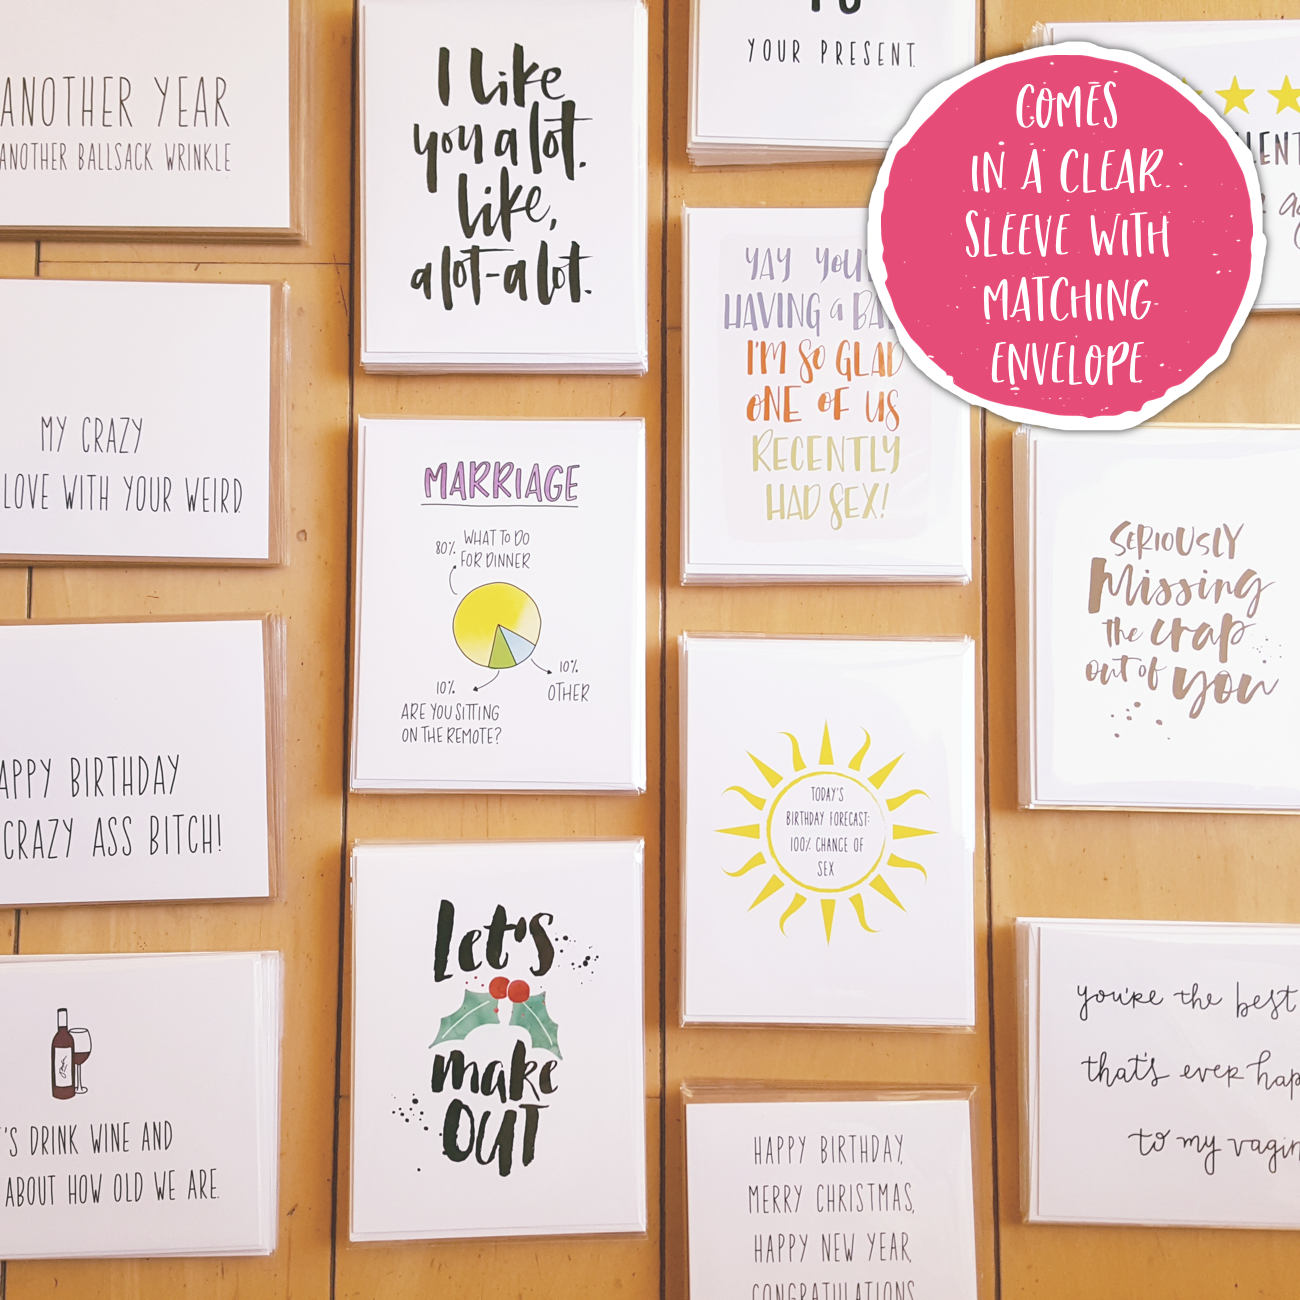 ANOTHER YEAR
ANOTHER BALLSACK WRINKLE
MY CRAZY
LOVE WITH YOUR WEIRD.
BIRTHDAY
CRAZY ASS BITCH!
DRINK WINE AND
ABOUT HOW OLD WE ARE.
I like
you a lot.
like,
a lot-a lot.
MARRIAGE
80% WHAT TO DO
FOR DINNER
10%
OTHER
10%
ARE YOU SITTING
ON THE REMOTE?
Let's
make
OUT
YOUR PRESENT.
YAY
HAVING a
I'M SO GLAD
ONE OF US
RECENTLY
HAD SEX!
TODAY'S
BIRTHDAY FORECAST:
100% CHANCE OF
SEX
HAPPY BIRTHDAY,
MERRY CHRISTMAS,
HAPPY NEW YEAR,
CONGRATULATIONS
COMES
IN A CLEAR
SLEEVE WITH
MATCHING
ENVELOPE
SERIOUSLY
Missing
the crap
out of
you
you're the best
that's ever
to my